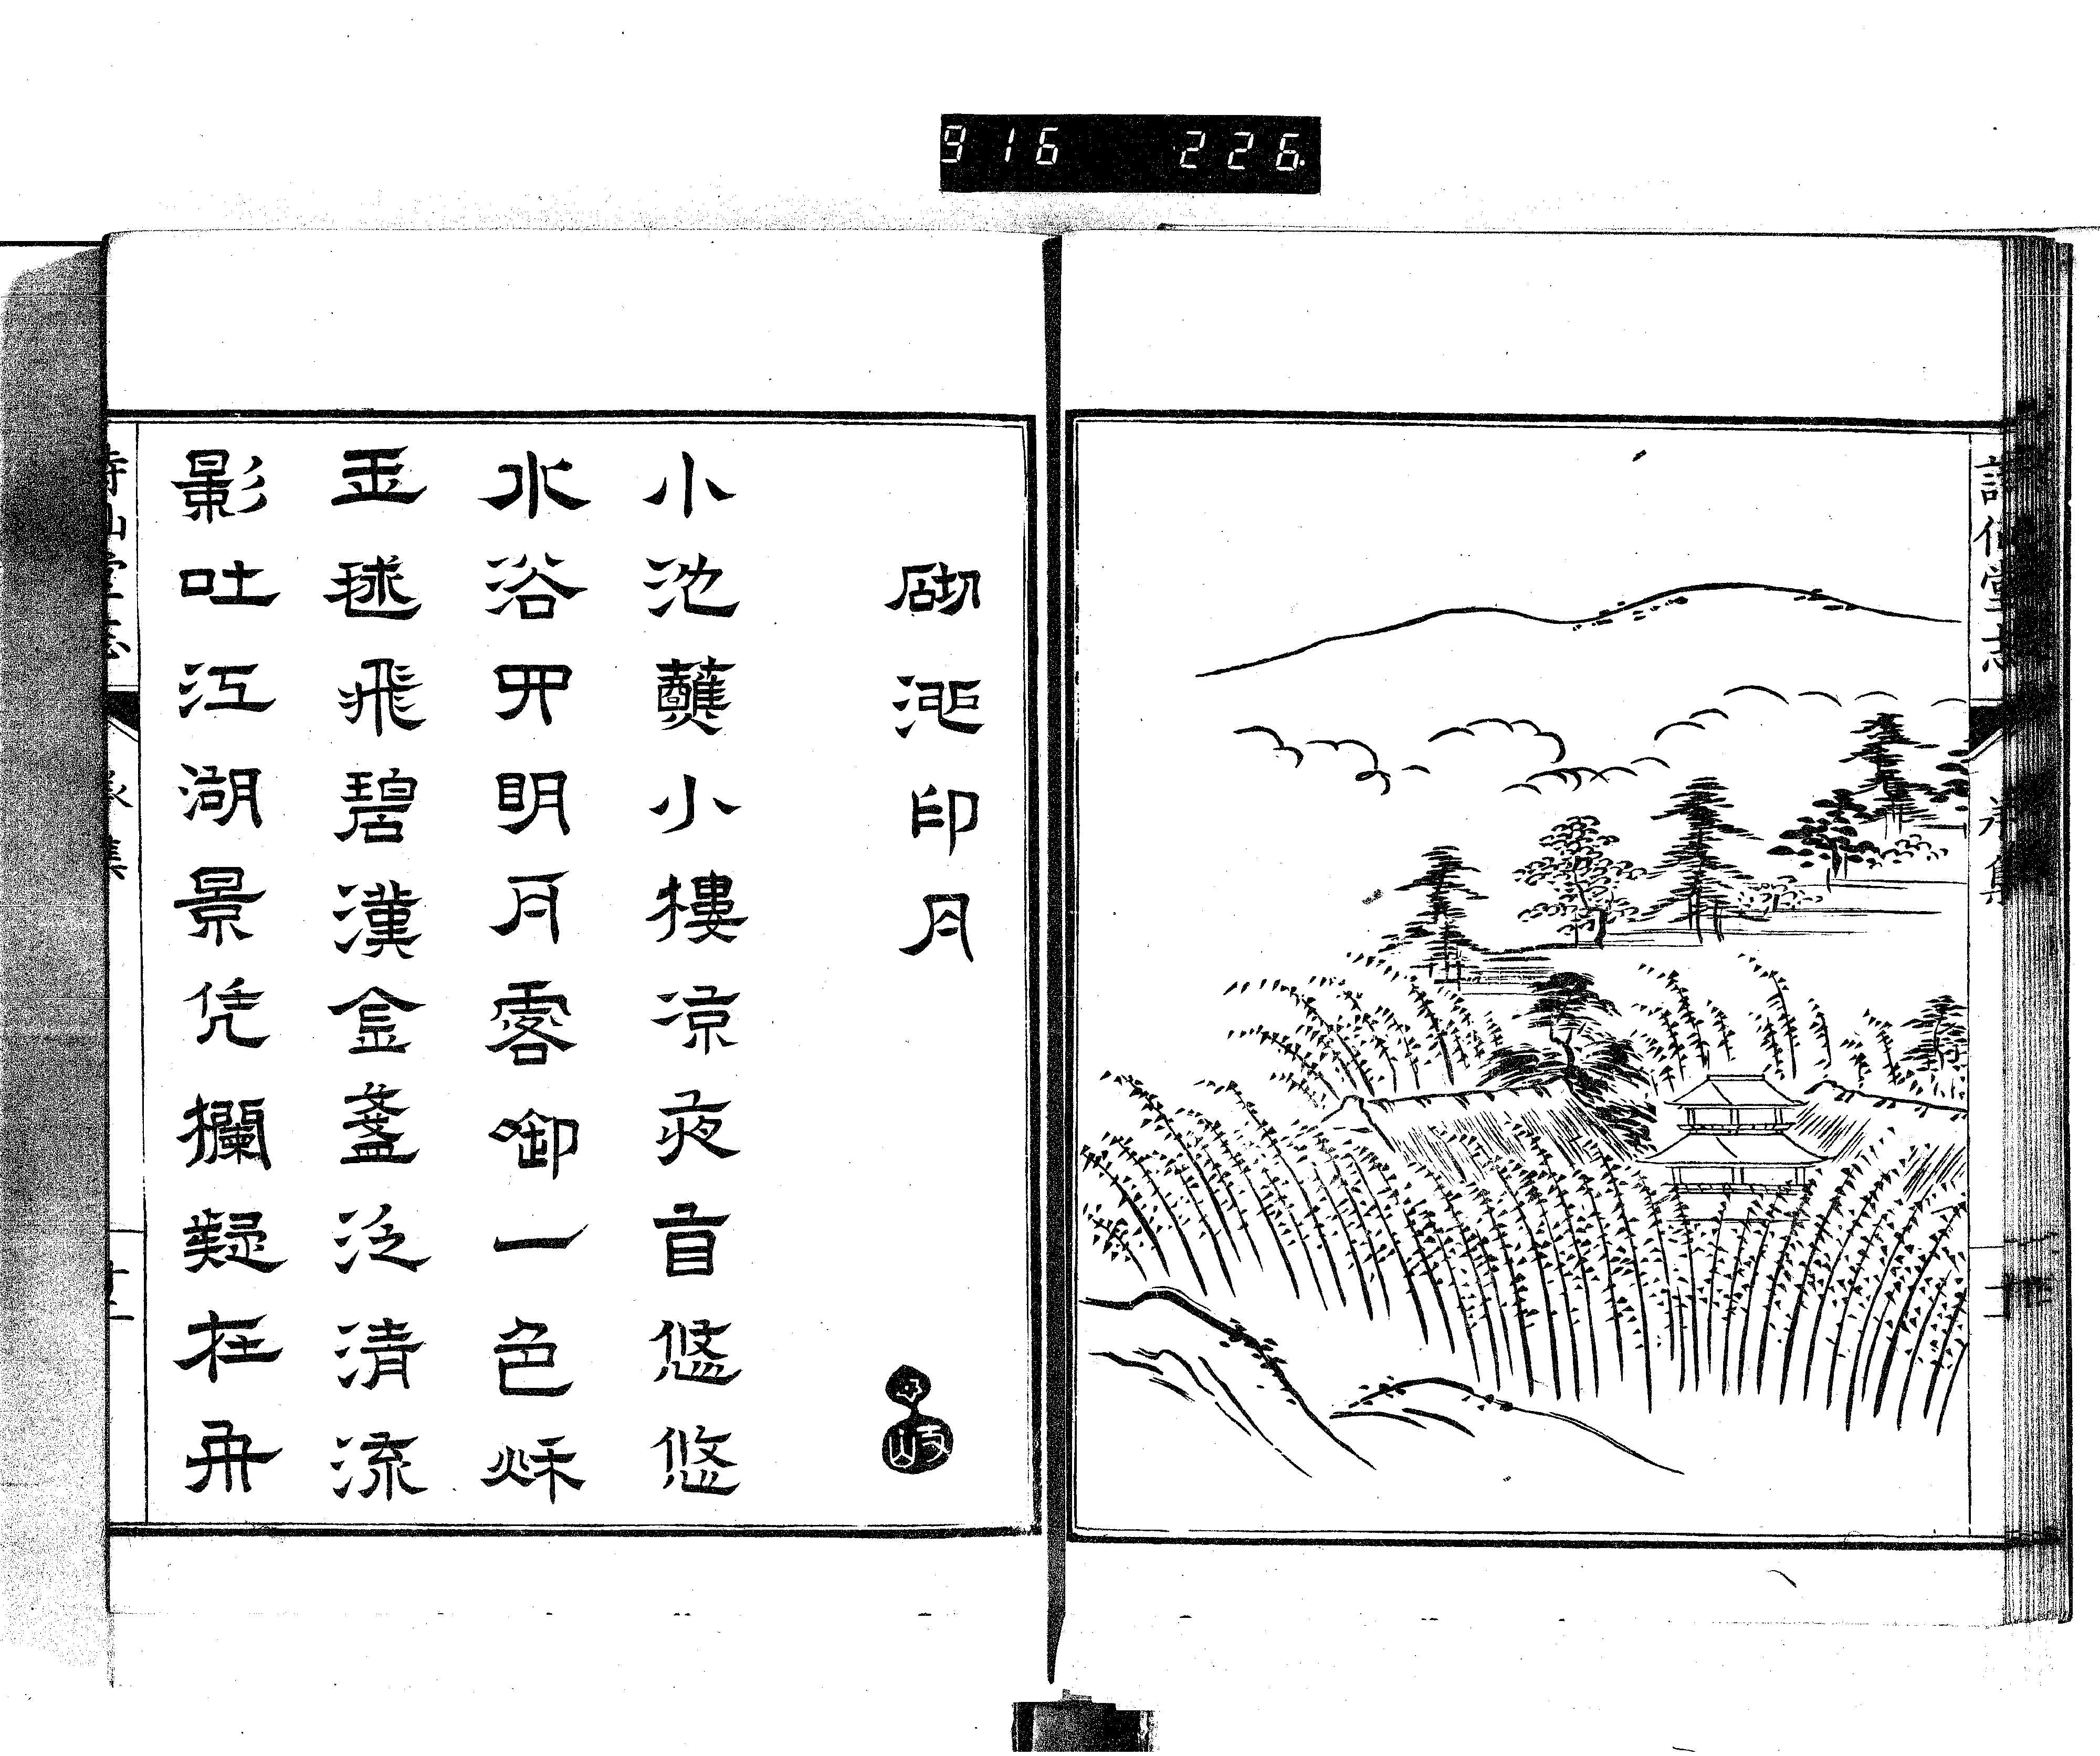 916 226
詩仙堂志
砌池印月
小池蘸小樓凉夜首悠悠
水浴明月一色秋
玉毬飛碧漢金盞泛清流
影吐江湖景凭欄疑在舟
詩仙堂志